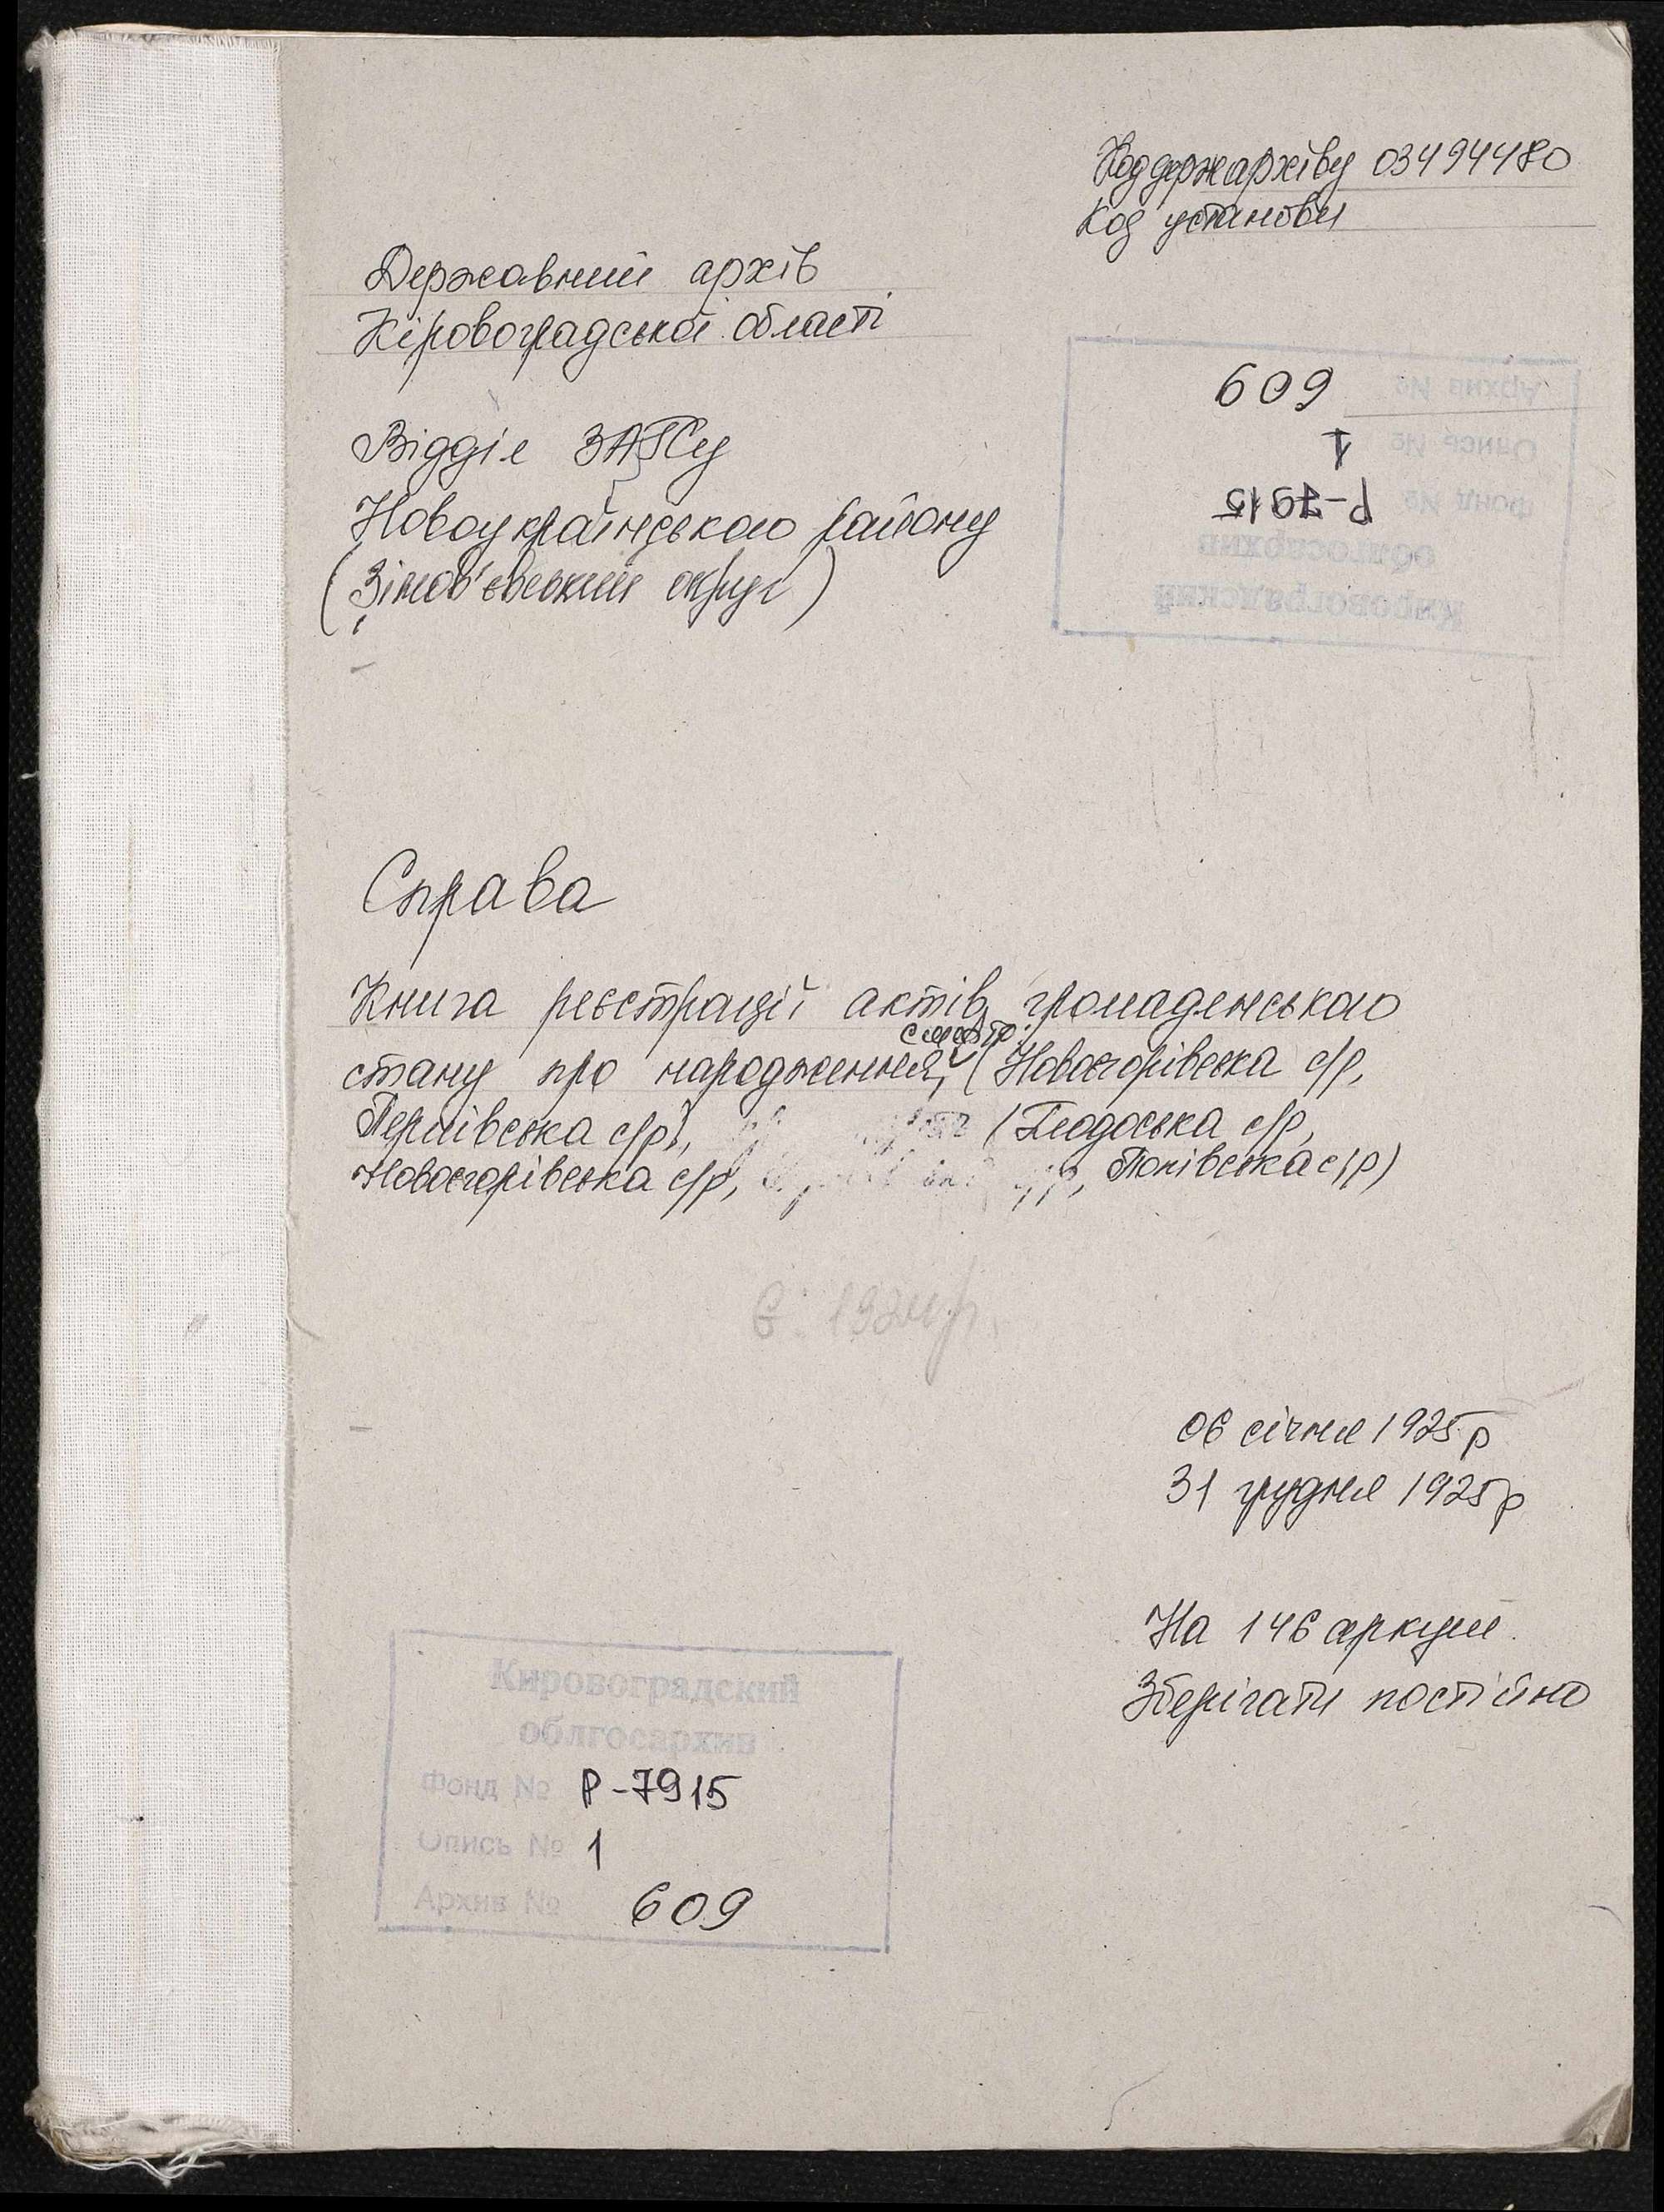 Код держархіву 03494480
Код установи
Державний архів
Кіровоградської області
609
Архив №
1
Опись №
Р-7915
Фонд №
облгосархив
Кировоградский
Відділ ЗАГСу
Новоукраїнського району
(Зінов'євський округ)
Справа
Книга реєстрації актів громадянського
смерть
стану про народження, (Новоєгорівська с/р,
Першівська с/р), (Глодоська с/р,
Новоєгорівська с/р, с/р, Попівська с/р)
є 1924 р.
06 січня 1925 р
31 грудня 1925 р
На 146 аркуш
Зберігати постійно
Кировоградский
облгосархив
Фонд № Р-7915
Опись № 1
Архив № 609